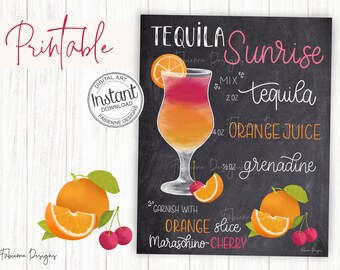 Printable
DIGITAL ART
Instant
DOWNLOAD
FABIENNE DESIGNS
Fabienne Designs
TEQUILA
Sunrise
MIX
2 OZ tequila
4 OZ ORANGE JUICE
GRENADINE
GARNISH WITH
ORANGE slice
Maraschino CHERRY